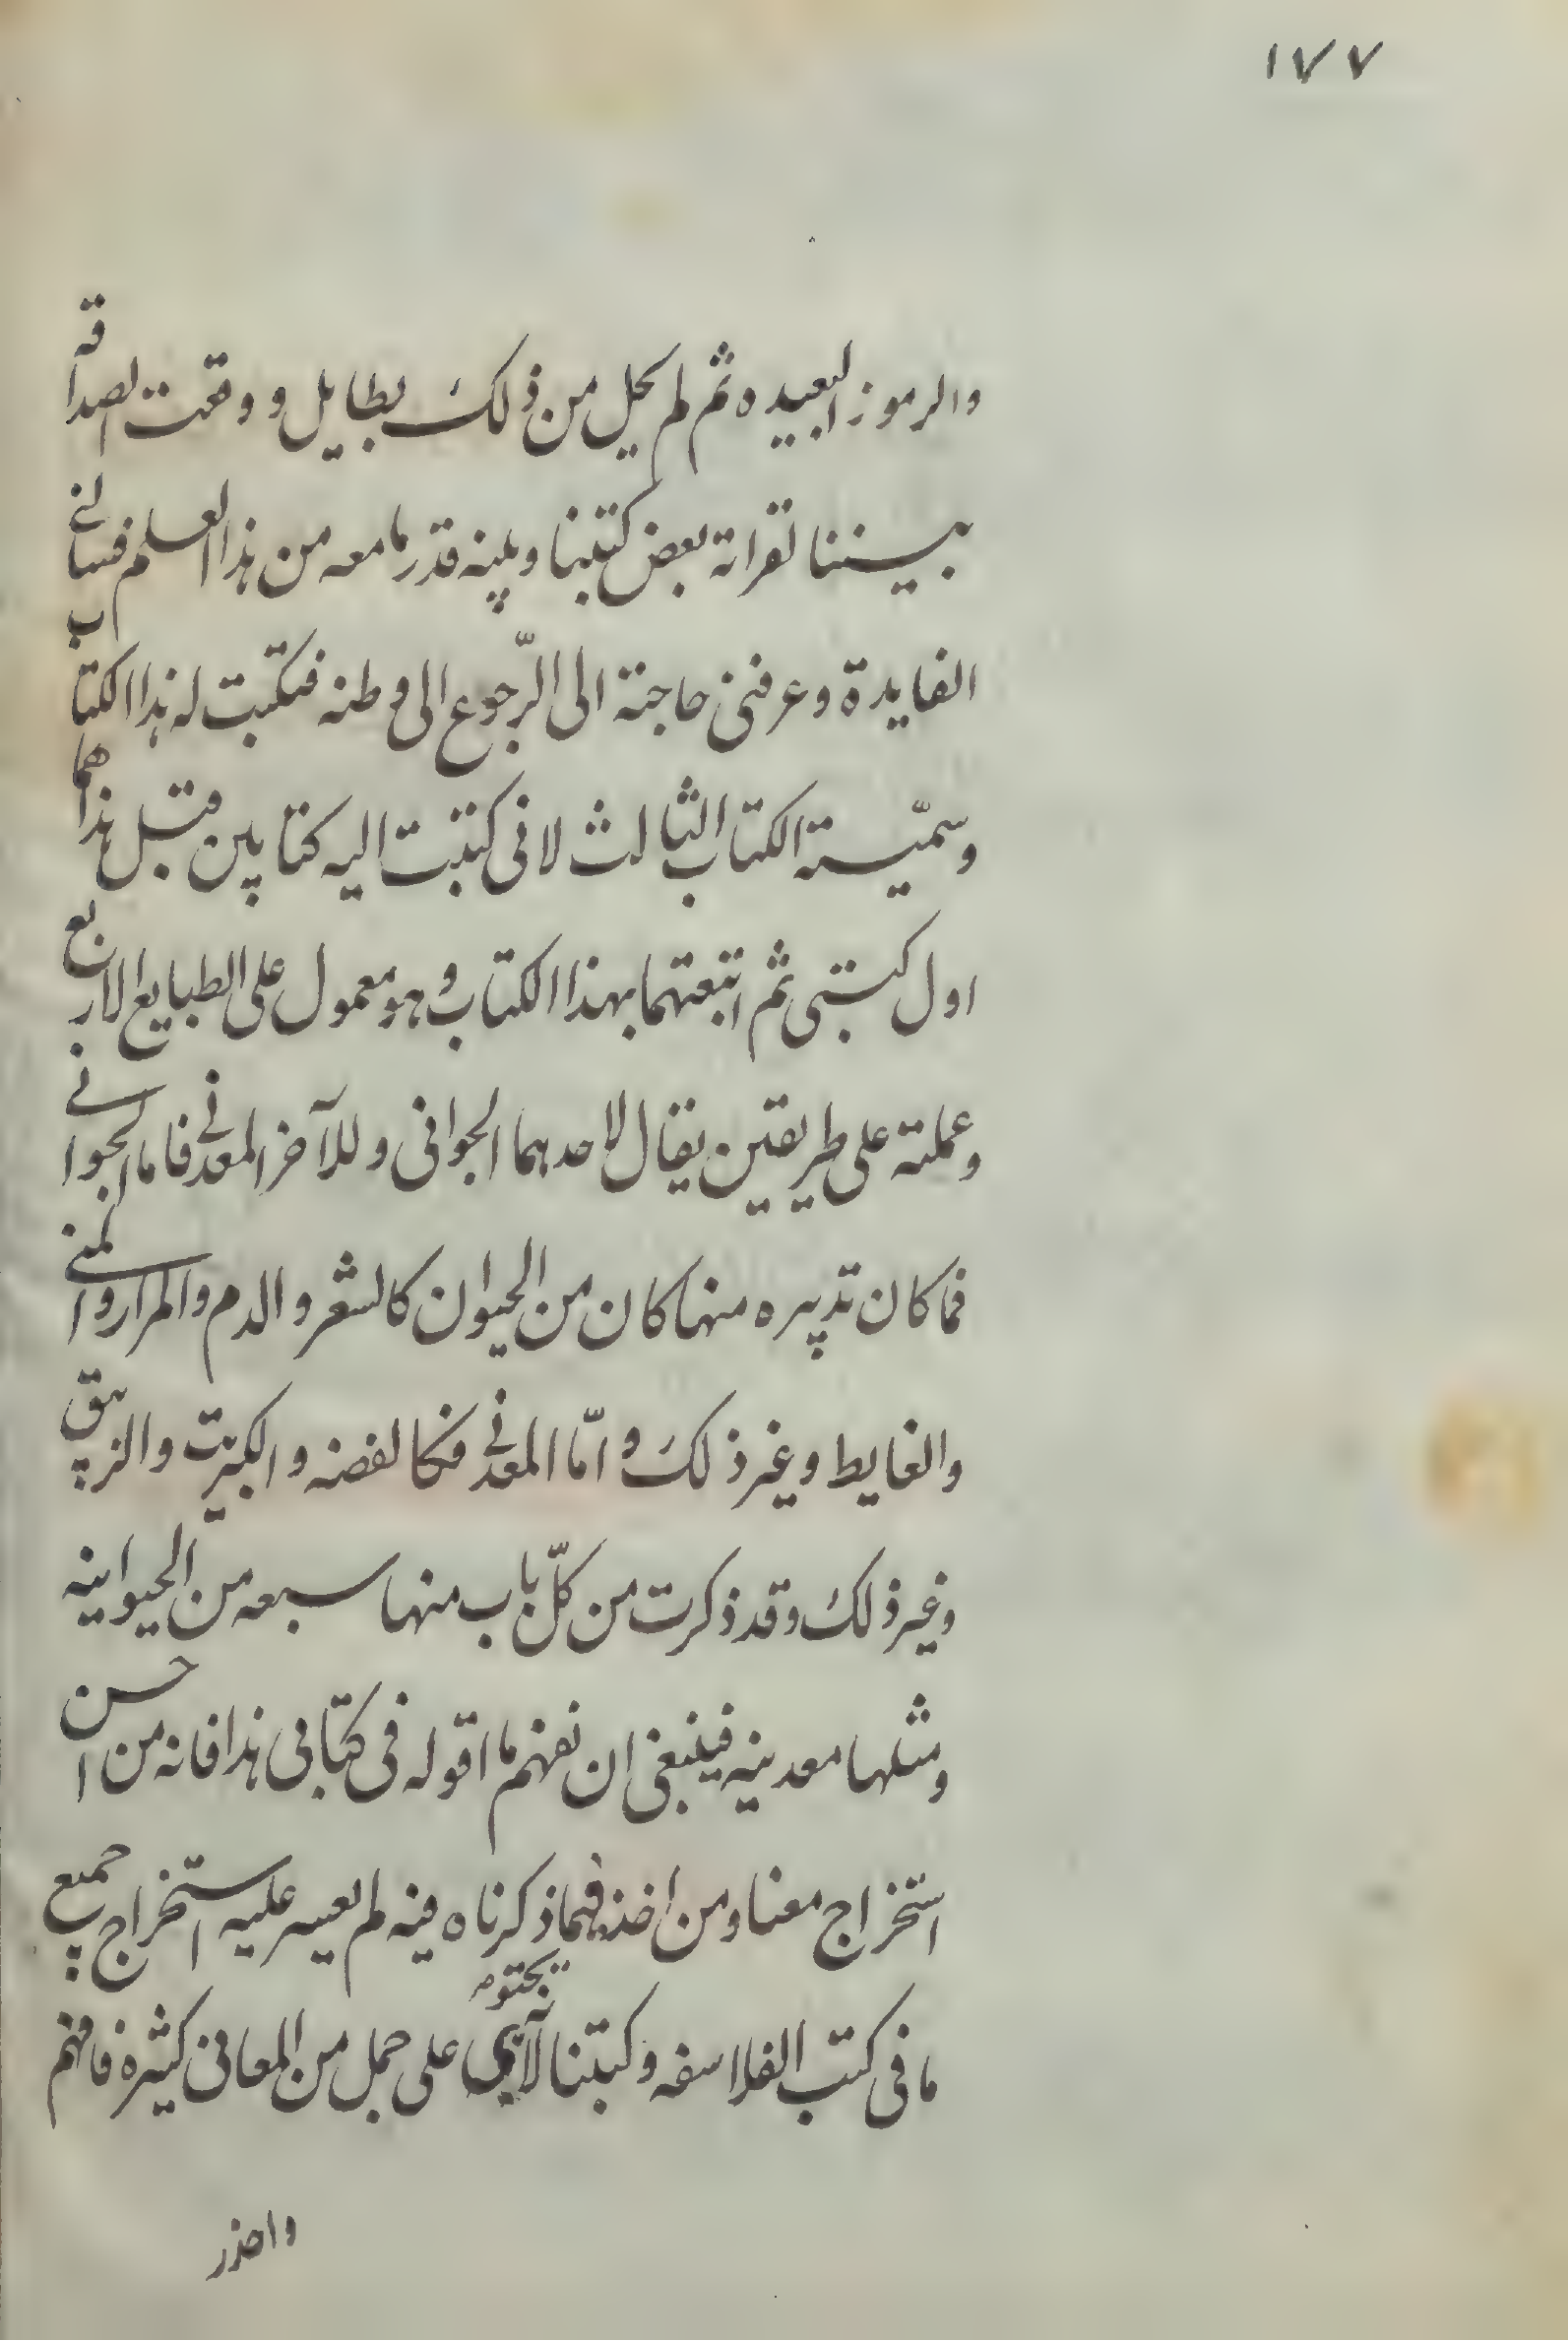 ١٧٧
والرموز البعيده ثم لم يحل من ذلك بطايل و وقعت الصداقه
بيننا لقرائة بعض كتبنا و قدر مامعه من هذا العلم فسالنى
الفايدة وعرفنى حاجته الى الرّجوع الى وطنه فكتبت له هذا الكتاب
وسمّيته الكتاب الثالث لانى كتبت اليه كتابين قبل هذا هما
اول كتبتى ثم اتبعتهما بهذا الكتاب وهو معمول على الطبايع الاربع
وعملته على طريقتين يقال لاحدهما الجوانى وللآخر المعدنى فاما الجوانى
فما كان تدبيره منها كان من الحيوان كالشعر والدم والمرار والمنى
والغايط وغير ذلك و امّا المعدنى فكالفضه والكبريت والزيبق
وغير ذلك وقد ذكرت من كلّ باب منها سبعه من الحيوانيه
ومثلها معدنيه فينبغى ان تفهم ما اقوله فى كتابى هذا فانه من احسن
استخراج معنا ومن اخذ فيما ذكرناه فيه لم يعسر عليه استخراج جميع
ما فى كتب الفلاسفه وكتبنا على جمل من المعانى كثيره فافهم
واحذر